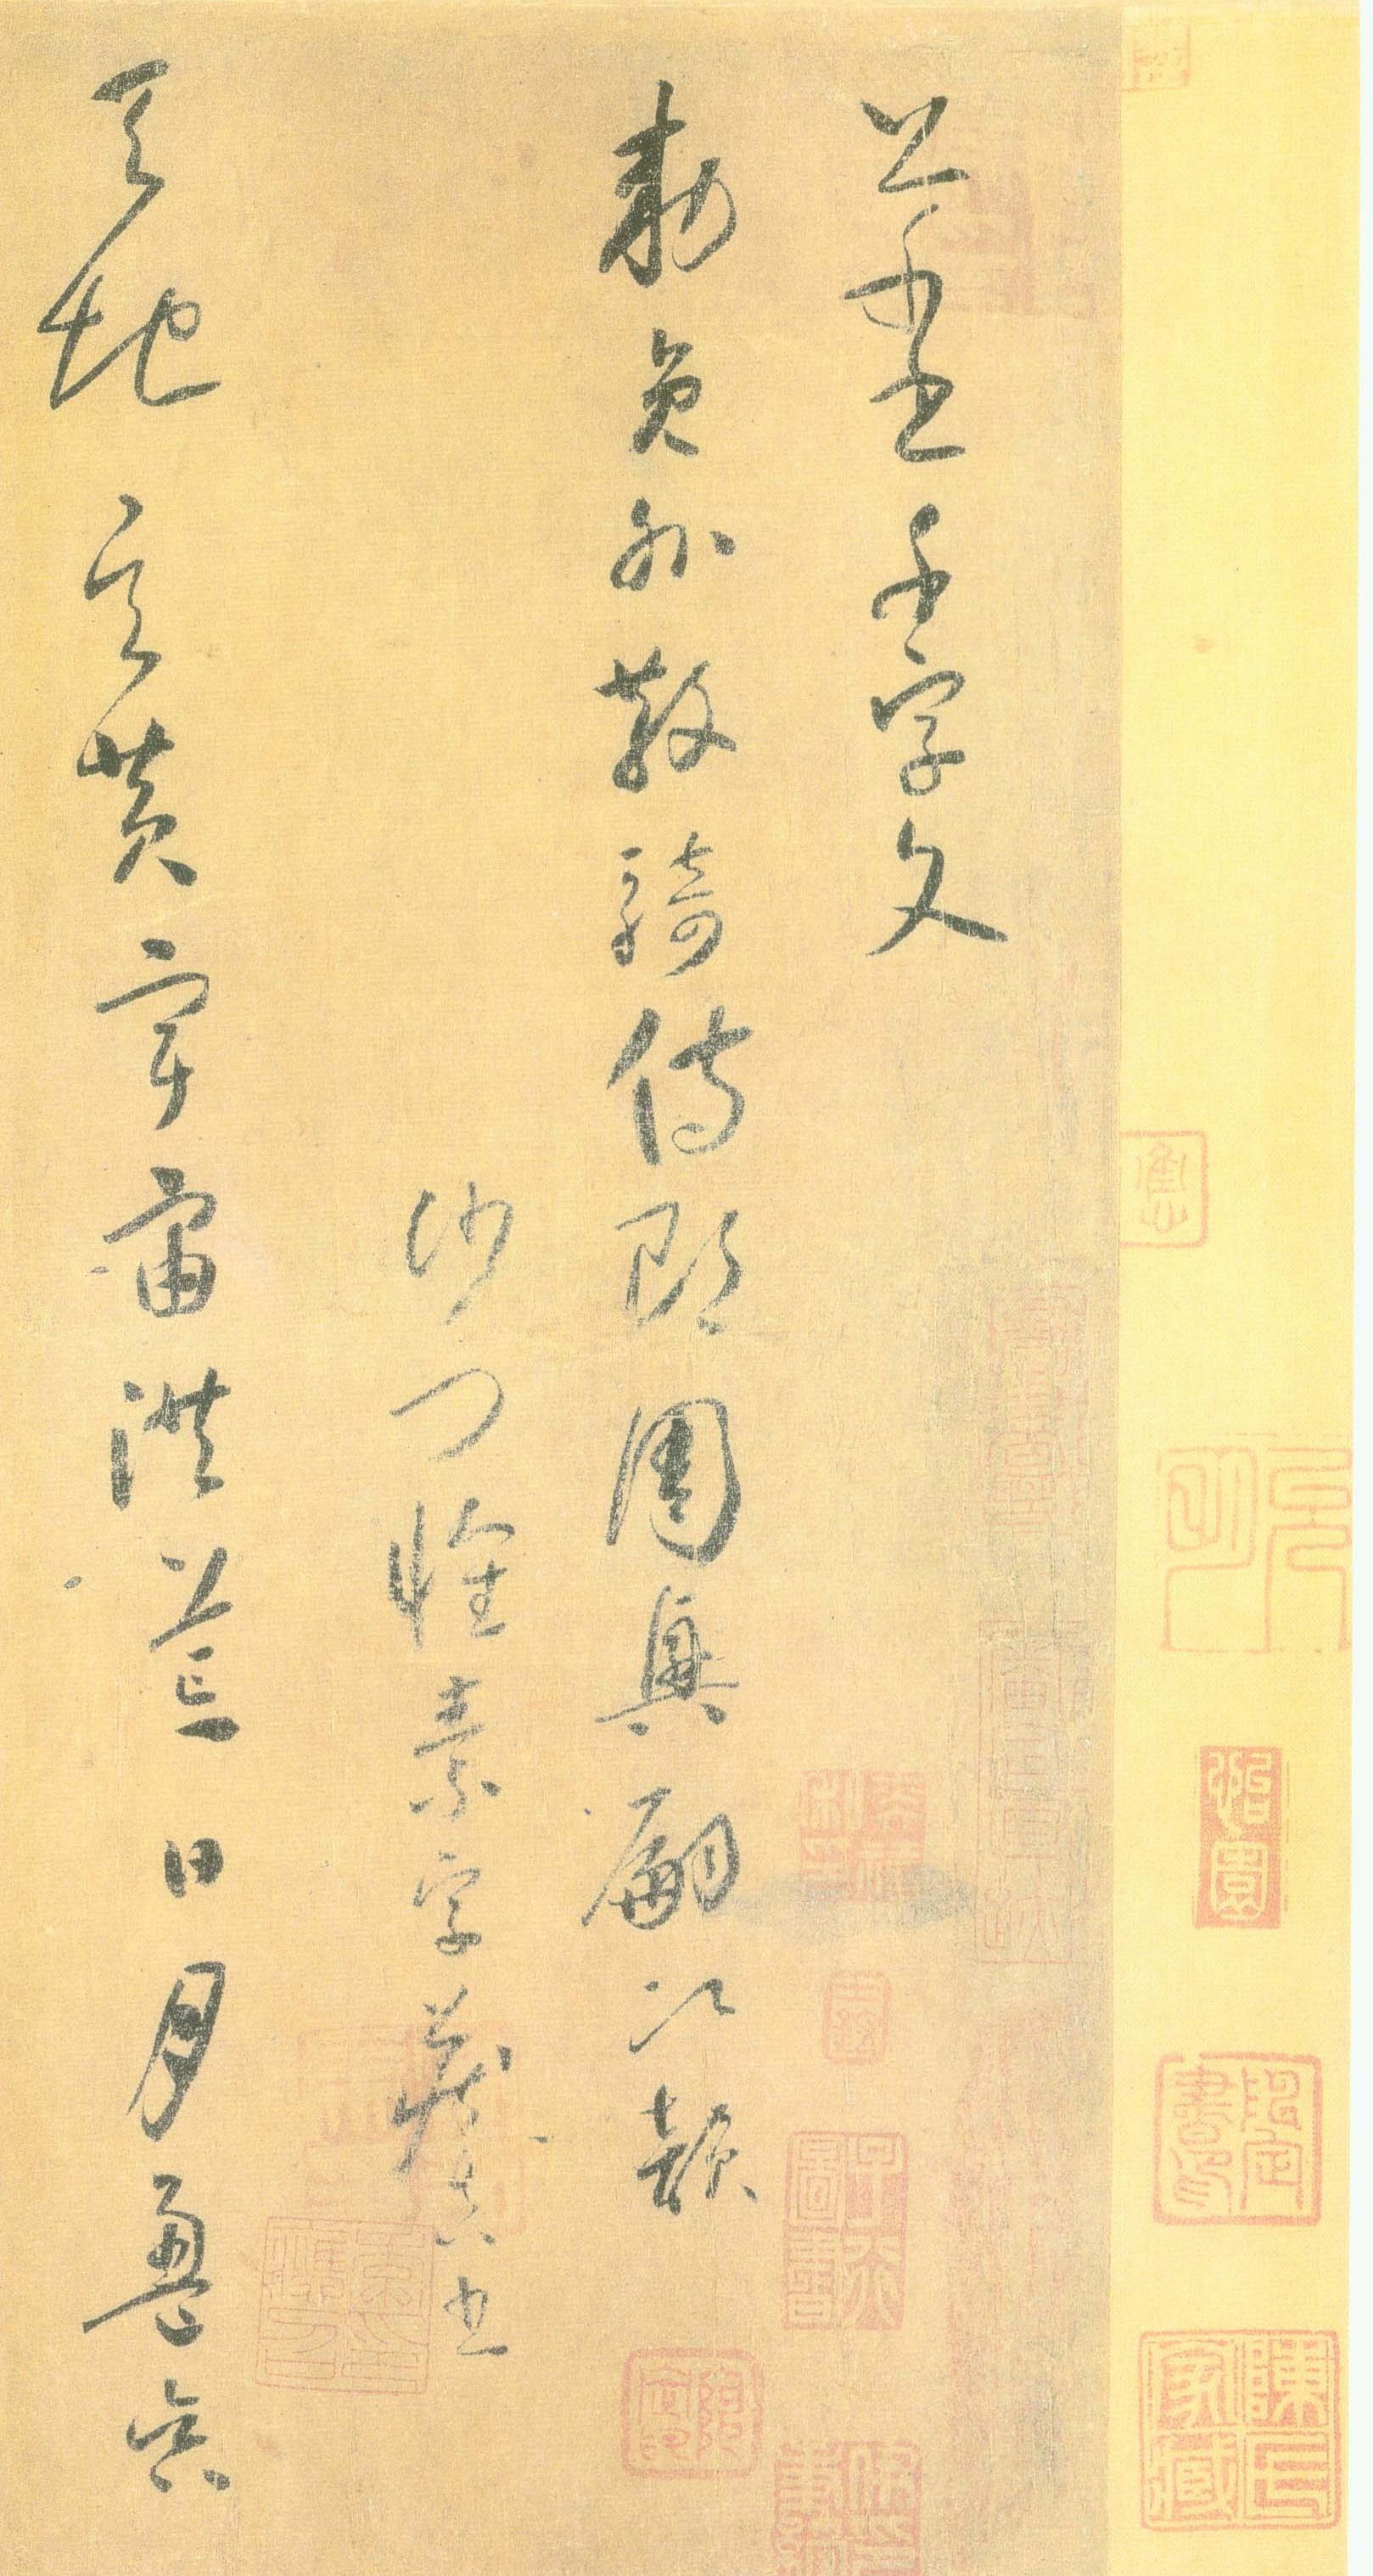 草書千字文
勅員外散騎侍郎周興嗣次韻
沙門懷素字藏真書
天地玄黃宇宙洪荒日月盈昃
陳氏家藏